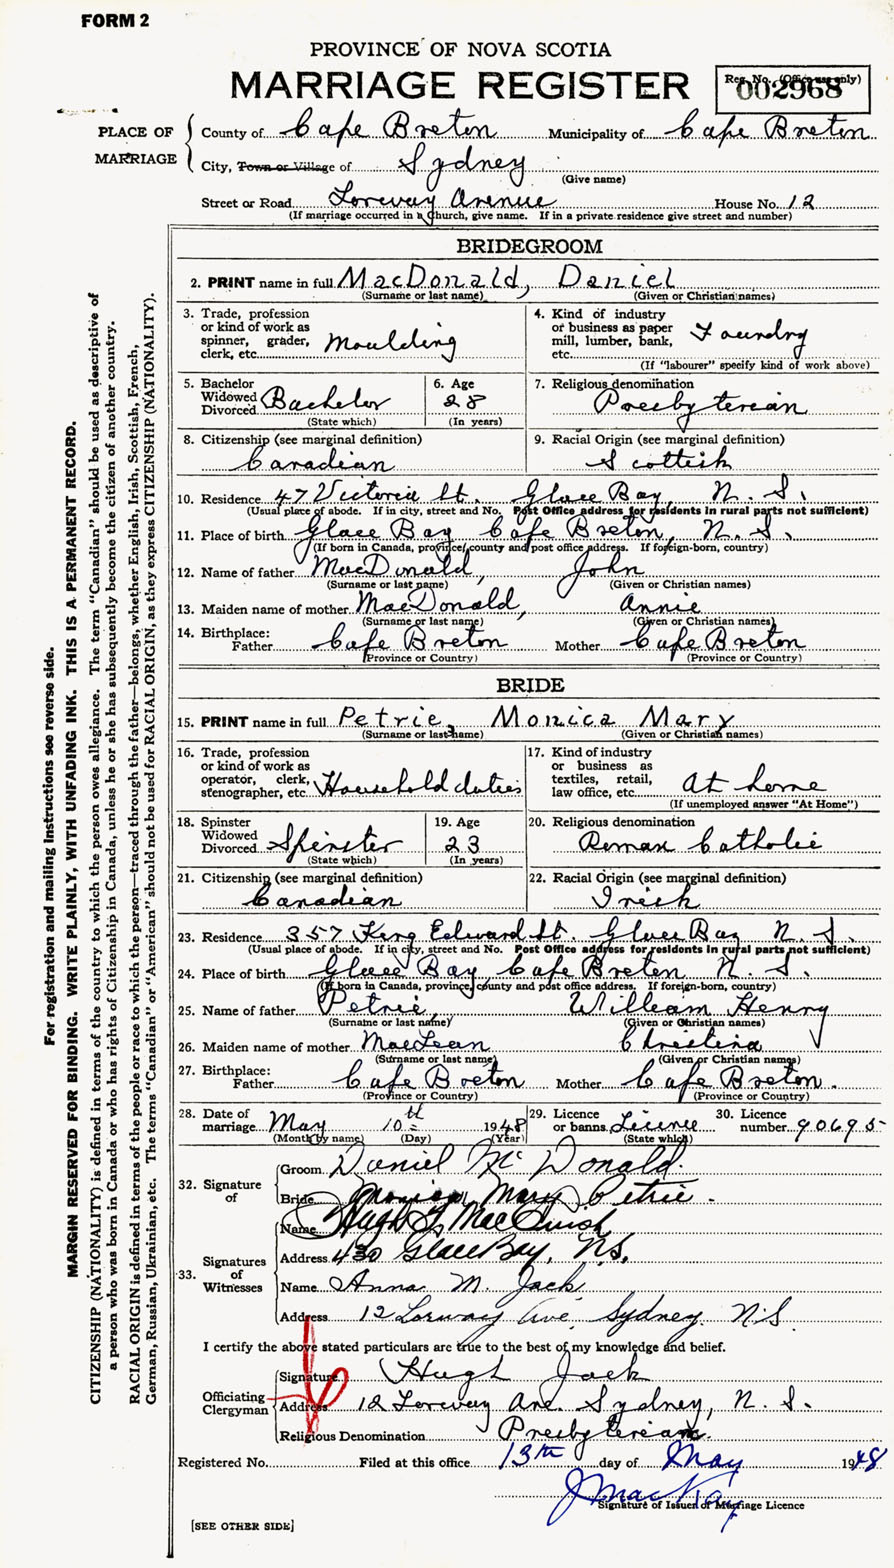 FORM 2
PROVINCE OF NOVA SCOTIA
MARRIAGE REGISTER
Reg. No. (Office use only)
002968
PLACE OF MARRIAGE
County of Cape Breton Municipality of Cape Breton
City, Town or Village of Sydney
(Give name)
Street or Road Lorway Avenue House No. 12
(If marriage occurred in a Church, give name. If in a private residence give street and number)
BRIDEGROOM
2. PRINT name in full MacDonald, Daniel
(Surname or last name) (Given or Christian names)
3. Trade, profession or kind of work as spinner, grader, clerk, etc. Moulding
4. Kind of industry or business as paper mill, lumber, bank, etc. Foundry
(If "labourer" specify kind of work above)
5. Bachelor Widowed Divorced Bachelor
(State which)
6. Age 28
(In years)
7. Religious denomination Presbyterian
8. Citizenship (see marginal definition) Canadian
9. Racial Origin (see marginal definition) Scottish
10. Residence 47 Victoria St. Glace Bay, N. S.
(Usual place of abode. If in city, street and No. Post Office address for residents in rural parts not sufficient)
11. Place of birth Glace Bay Cape Breton, N. S.
(If born in Canada, province, county and post office address. If foreign-born, country)
12. Name of father MacDonald, John
(Surname or last name) (Given or Christian names)
13. Maiden name of mother MacDonald, Annie
(Surname or last name) (Given or Christian names)
14. Birthplace: Father Cape Breton Mother Cape Breton
(Province or Country) (Province or Country)
BRIDE
15. PRINT name in full Petrie, Monica Mary
(Surname or last name) (Given or Christian names)
16. Trade, profession or kind of work as operator, clerk, stenographer, etc. Household duties
17. Kind of industry or business as textiles, retail, law office, etc. At home
(If unemployed answer "At Home")
18. Spinster Widowed Divorced Spinster
(State which)
19. Age 23
(In years)
20. Religious denomination Roman Catholic
21. Citizenship (see marginal definition) Canadian
22. Racial Origin (see marginal definition) Irish
23. Residence 357 King Edward St. Glace Bay N. S.
(Usual place of abode. If in city, street and No. Post Office address for residents in rural parts not sufficient)
24. Place of birth Glace Bay, Cape Breton N. S.
(If born in Canada, province, county and post office address. If foreign-born, country)
25. Name of father Petrie, William Henry
(Surname or last name) (Given or Christian names)
26. Maiden name of mother MacLean Christina
(Surname or last name) (Given or Christian names)
27. Birthplace: Father Cape Breton Mother Cape Breton.
(Province or Country) (Province or Country)
28. Date of marriage May 10th 1948
(Month by name) (Day) (Year)
29. Licence or banns Licence
(State which)
30. Licence number 90695
32. Signature of
Groom Daniel McDonald.
Bride Monica Mary Petrie.
33. Signatures of Witnesses
Name Hugh
Address 430 Glace Bay, N.S.
Name Anna M. Jack
Address 12 Lorway Ave, Sydney N.S
I certify the above stated particulars are true to the best of my knowledge and belief.
Officiating Clergyman
Signature Hugh Jack
Address 12 Lorway Ave. Sydney, N. S.
Religious Denomination Presbyterian.
Registered No. Filed at this office 13th day of May 1948
J MacKay
Signature of Issuer of Marriage Licence
[SEE OTHER SIDE]
For registration and mailing instructions see reverse side.
MARGIN RESERVED FOR BINDING. WRITE PLAINLY, WITH UNFADING INK. THIS IS A PERMANENT RECORD.
CITIZENSHIP (NATIONALITY) is defined in terms of the country to which the person owes allegiance. The term "Canadian" should be used as descriptive of
a person who was born in Canada or who has rights of Citizenship in Canada, unless he or she has subsequently become the citizen of another country.
RACIAL ORIGIN is defined in terms of the people or race to which the person—traced through the father—belongs, whether English, Irish, Scottish, French,
German, Russian, Ukrainian, etc. The terms "Canadian" or "American" should not be used for RACIAL ORIGIN, as they express CITIZENSHIP (NATIONALITY).